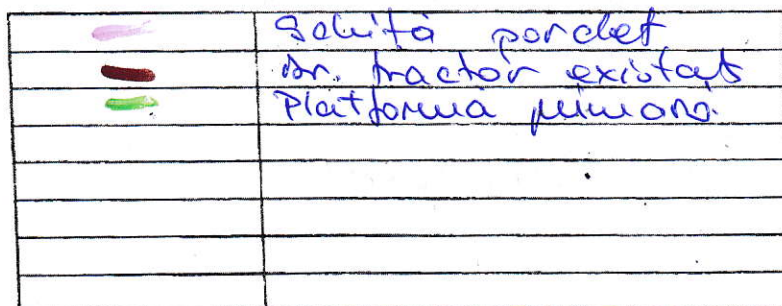 Schiță parchet
Dr. tractor existent
Platformă primară